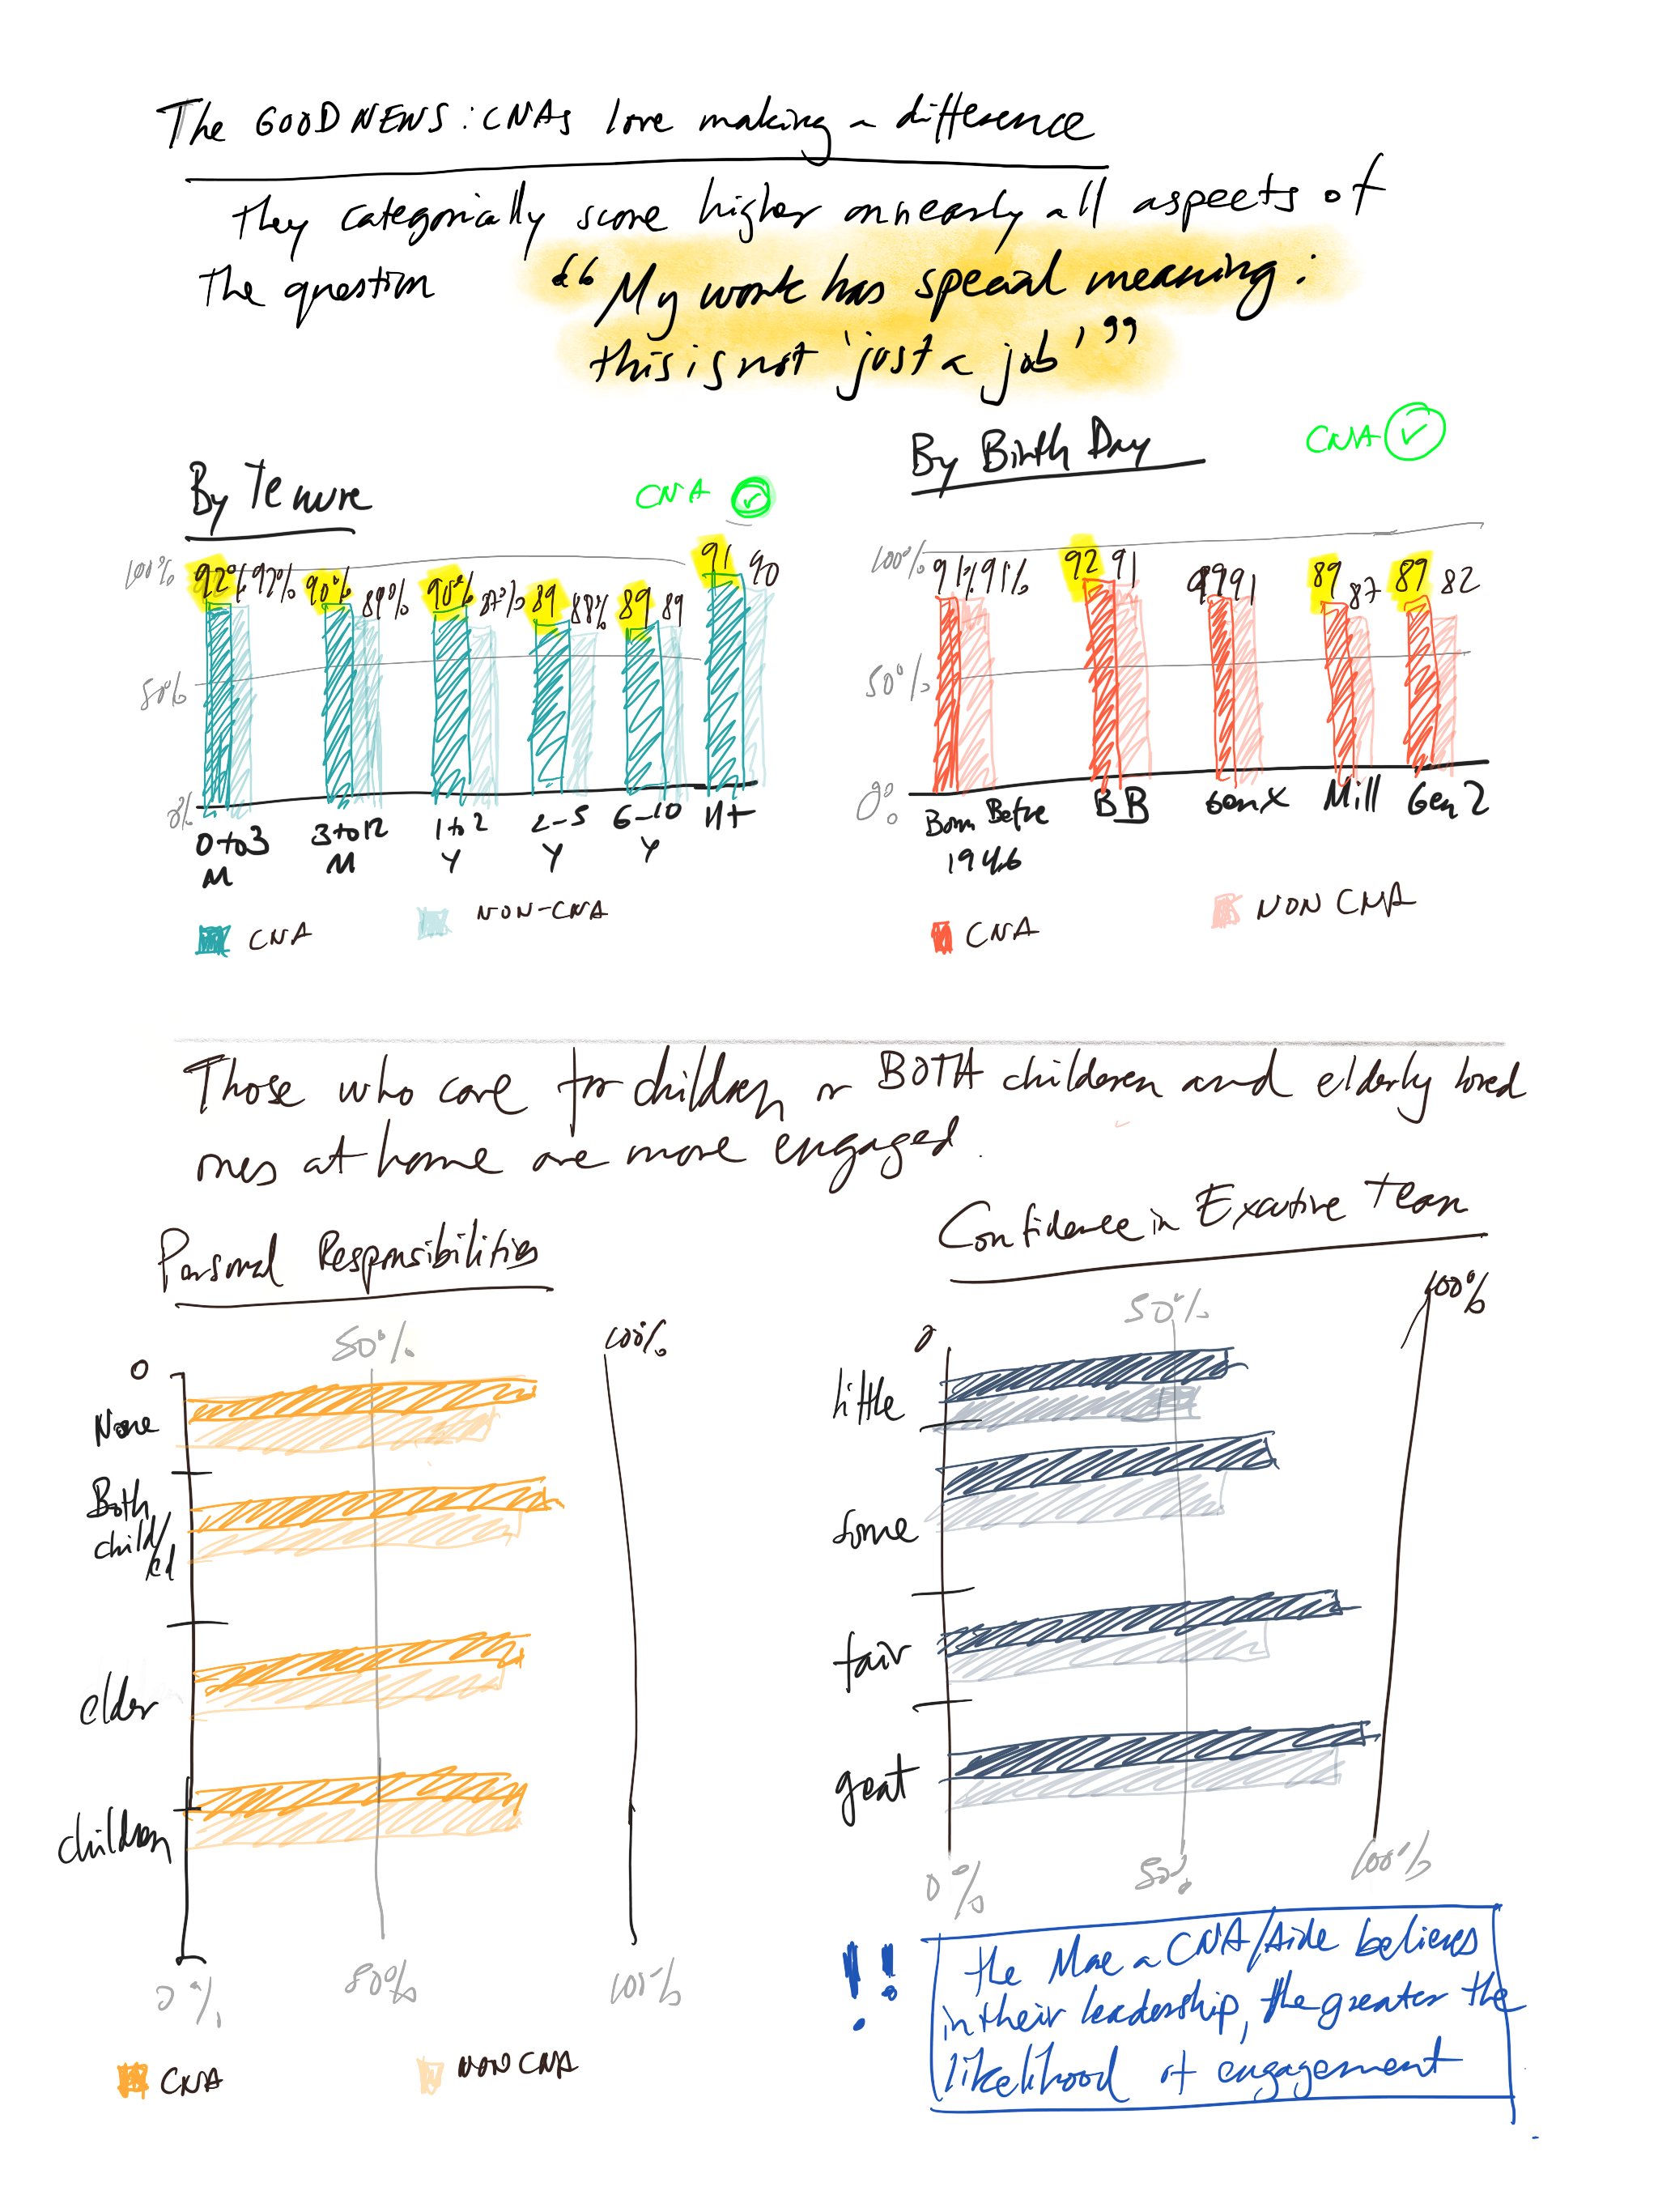 The GOOD NEWS: CNAs love making a difference
They categorially score higher on nearly all aspects of
The question "My work has special meaning:
this is not 'just a job'"
By Tenure
CNA
100%
92% 92%
90%
90% 87%
89 88%
89 89
91 90
50%
0%
0 to 3 M
3 to 12 M
1 to 2 Y
2-5 Y
6-10 Y
11+
CNA
NON-CNA
By Birth Day
CNA
100%
91% 91%
92 91
91
89 87
89 82
50%
0%
Born Before 1946
BB
Gen X
Mill
Gen Z
CNA
NON CNA
Those who care for children or BOTH children and elderly loved
ones at home are more engaged.
Personal Responsibilities
0
50%
100%
None
Both
child/
eld
elder
children
0%
50%
100%
CNA
NON CNA
Confidence in Executive Team
0
50%
100%
little
some
fair
great
0%
50%
100%
!!
the More a CNA/Aide believes
in their leadership, the greater the
likelihood of engagement